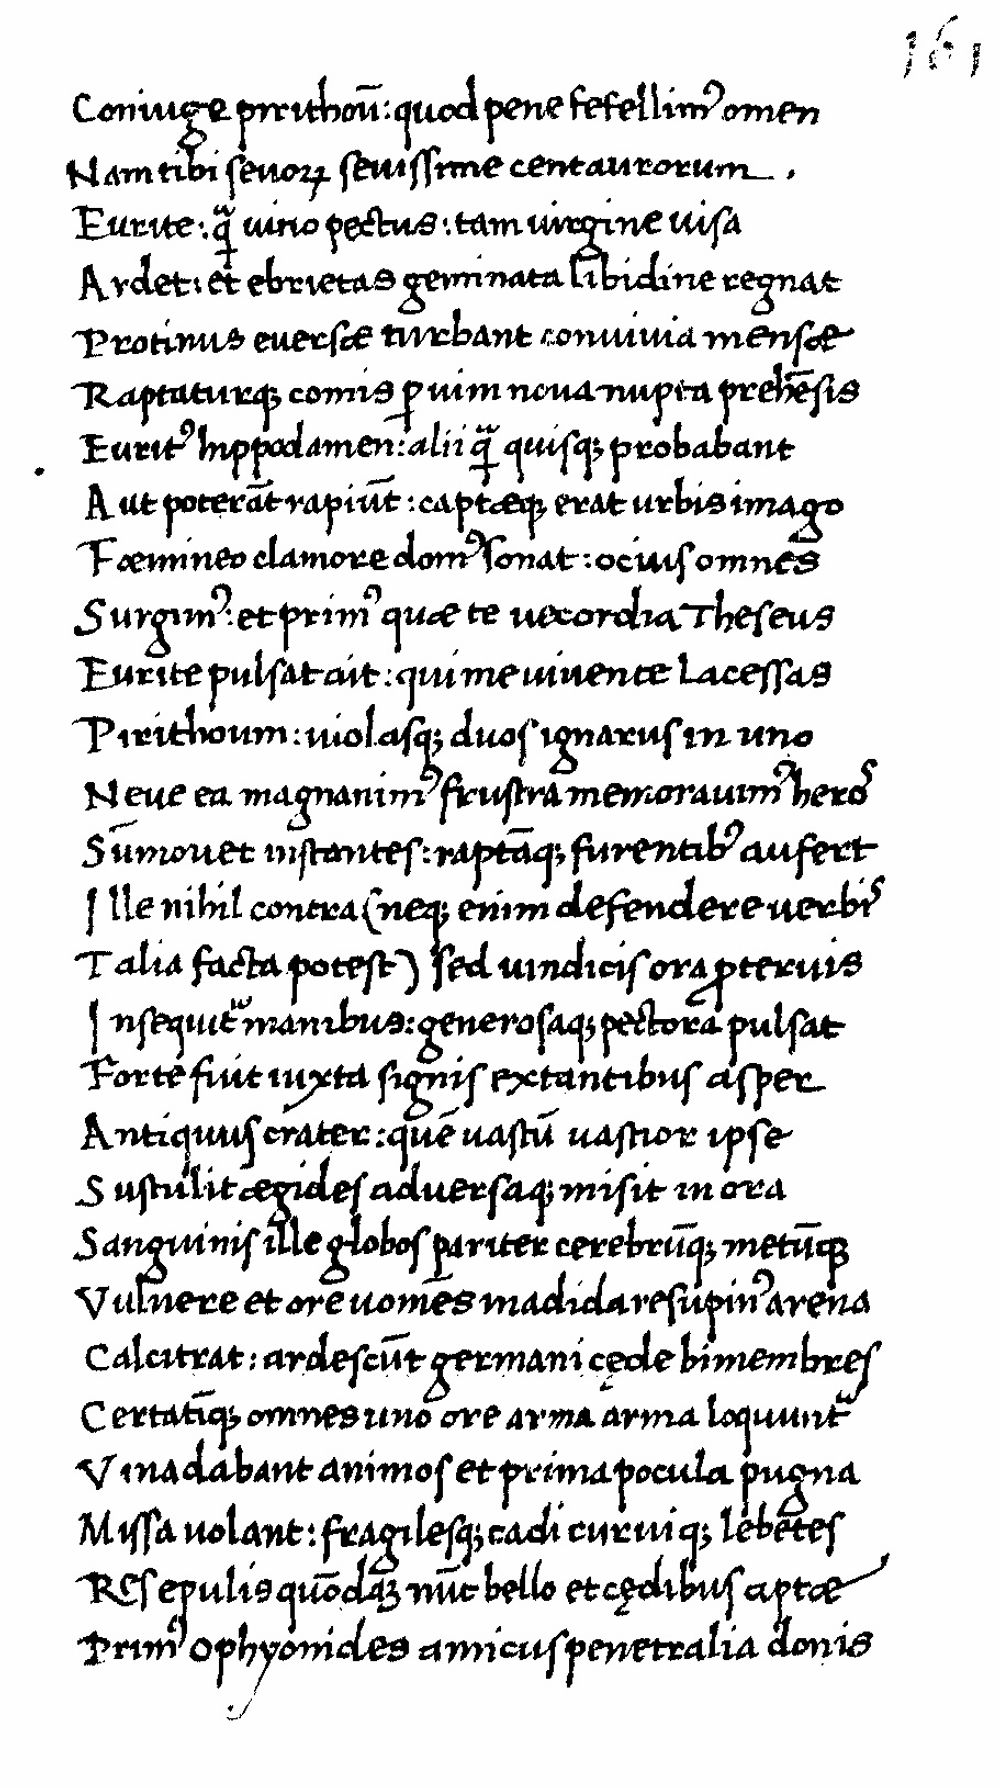 161
Coniuge pirithoū: quod pene fefellimꝰ omen
Nam tibi seuoꝝ seuissime centaurorum.
Eurite: qᷓ uino pectus: tam uirgine uisa
Ardet: et ebrietas geminata libidine regnat
Protinus euersæ turbant conuiuia mensæ
Raptaturqꝫ comis ꝑ uim noua nupta prehēsis
Euritꝰ hippodamen: alii qᷓ quisqꝫ probabant
Aut poterāt rapiūt: captæqꝫ erat urbis imago
Fœmineo clamore domꝰ sonat: ocius omnes
Surgimꝰ: et primꝰ quæ te uecordia Theseus
Eurite pulsat ait: qui me uiuente lacessas
Pirithoum: uiolasqꝫ duos ignarus in uno
Neue ea magnanimꝰ frustra memorauimꝰ heros
Sūmouet instantes: raptāqꝫ furentibꝰ aufert
Ille nihil contra (neqꝫ enim defendere uerbis
Talia facta potest) sed uindicis ora ꝓteruis
Insequit᷑ manibus: generosaqꝫ pectora pulsat
Forte fuit iuxta signis extantibus asper
Antiquus crater: quē uastū uastior ipse
Sustulit ægides aduersaqꝫ misit in ora
Sanguinis ille globos pariter cerebrūqꝫ metūqꝫ
Vulnere et ore uomēs madida resupinꝰ arena
Calcitrat: ardescūt germani cęde bimembres
Certatīqꝫ omnes uno ore arma arma loquunt᷑
Vina dabant animos et prima pocula pugna
Missa uolant: fragilesqꝫ cadi curuiqꝫ lebetes
Res epulis quōdā nūc bello et cędibus aptæ
Primꝰ Ophyonides amicus penetralia donis